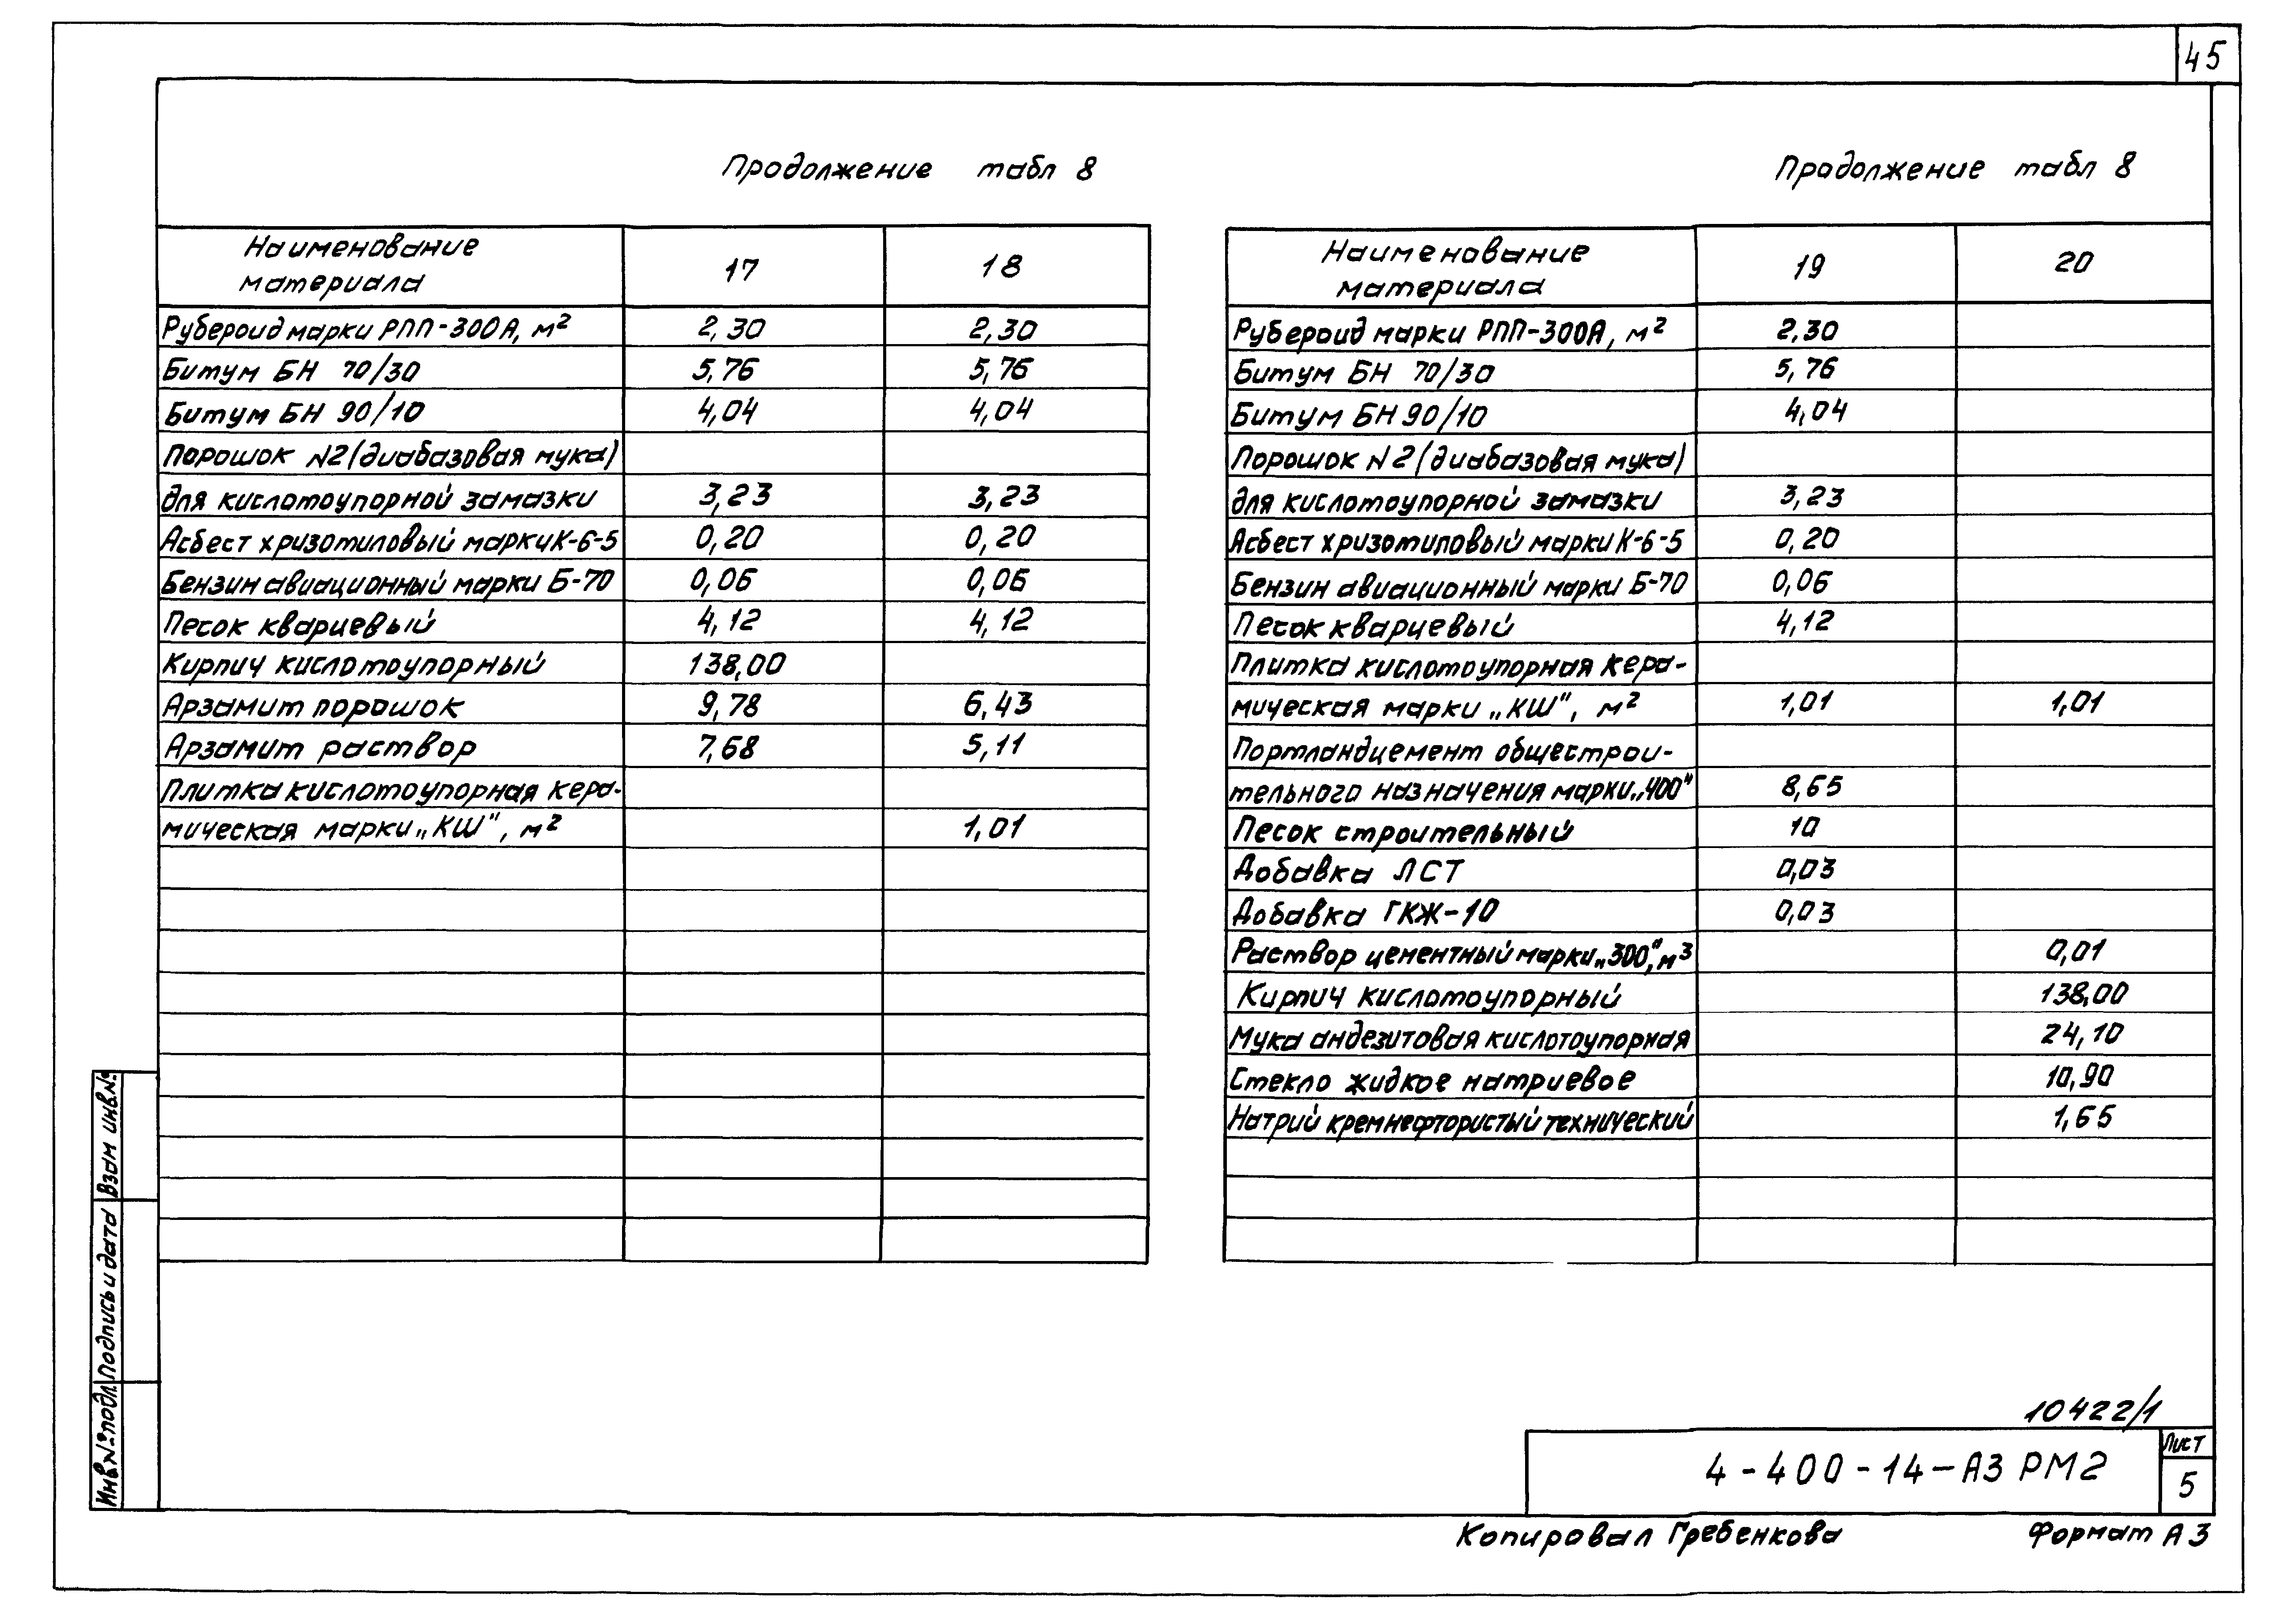 45
Продолжение табл 8
Наименование материала 17 18
Рубероид марки РПП-300А, м² 2,30 2,30
Битум БН 70/30 5,76 5,76
Битум БН 90/10 4,04 4,04
Порошок N2 (диабазовая мука)
для кислотоупорной замазки 3,23 3,23
Асбест хризотиловый марки К-6-5 0,20 0,20
Бензин авиационный марки Б-70 0,06 0,06
Песок кварцевый 4,12 4,12
Кирпич кислотоупорный 138,00
Арзамит порошок 9,78 6,43
Арзамит раствор 7,68 5,11
Плитка кислотоупорная кера-
мическая марки „КШ", м² 1,01
Продолжение табл 8
Наименование материала 19 20
Рубероид марки РПП-300А, м² 2,30
Битум БН 70/30 5,76
Битум БН 90/10 4,04
Порошок N2 (диабазовая мука)
для кислотоупорной замазки 3,23
Асбест хризотиловый марки К-6-5 0,20
Бензин авиационный марки Б-70 0,06
Песок кварцевый 4,12
Плитка кислотоупорная кера-
мическая марки „КШ", м² 1,01 1,01
Портландцемент общестрои-
тельного назначения марки „400" 8,65
Песок строительный 10
Добавка ЛСТ 0,03
Добавка ГКЖ-10 0,03
Раствор цементный марки „300", м³ 0,01
Кирпич кислотоупорный 138,00
Мука андезитовая кислотоупорная 24,10
Стекло жидкое натриевое 10,90
Натрий кремнефтористый технический 1,65
Инв№подл Подпись и дата Взам инв№
10422/1
4-400-14-А3 РМ2
Лист
5
Копировал Гребенкова Формат А3